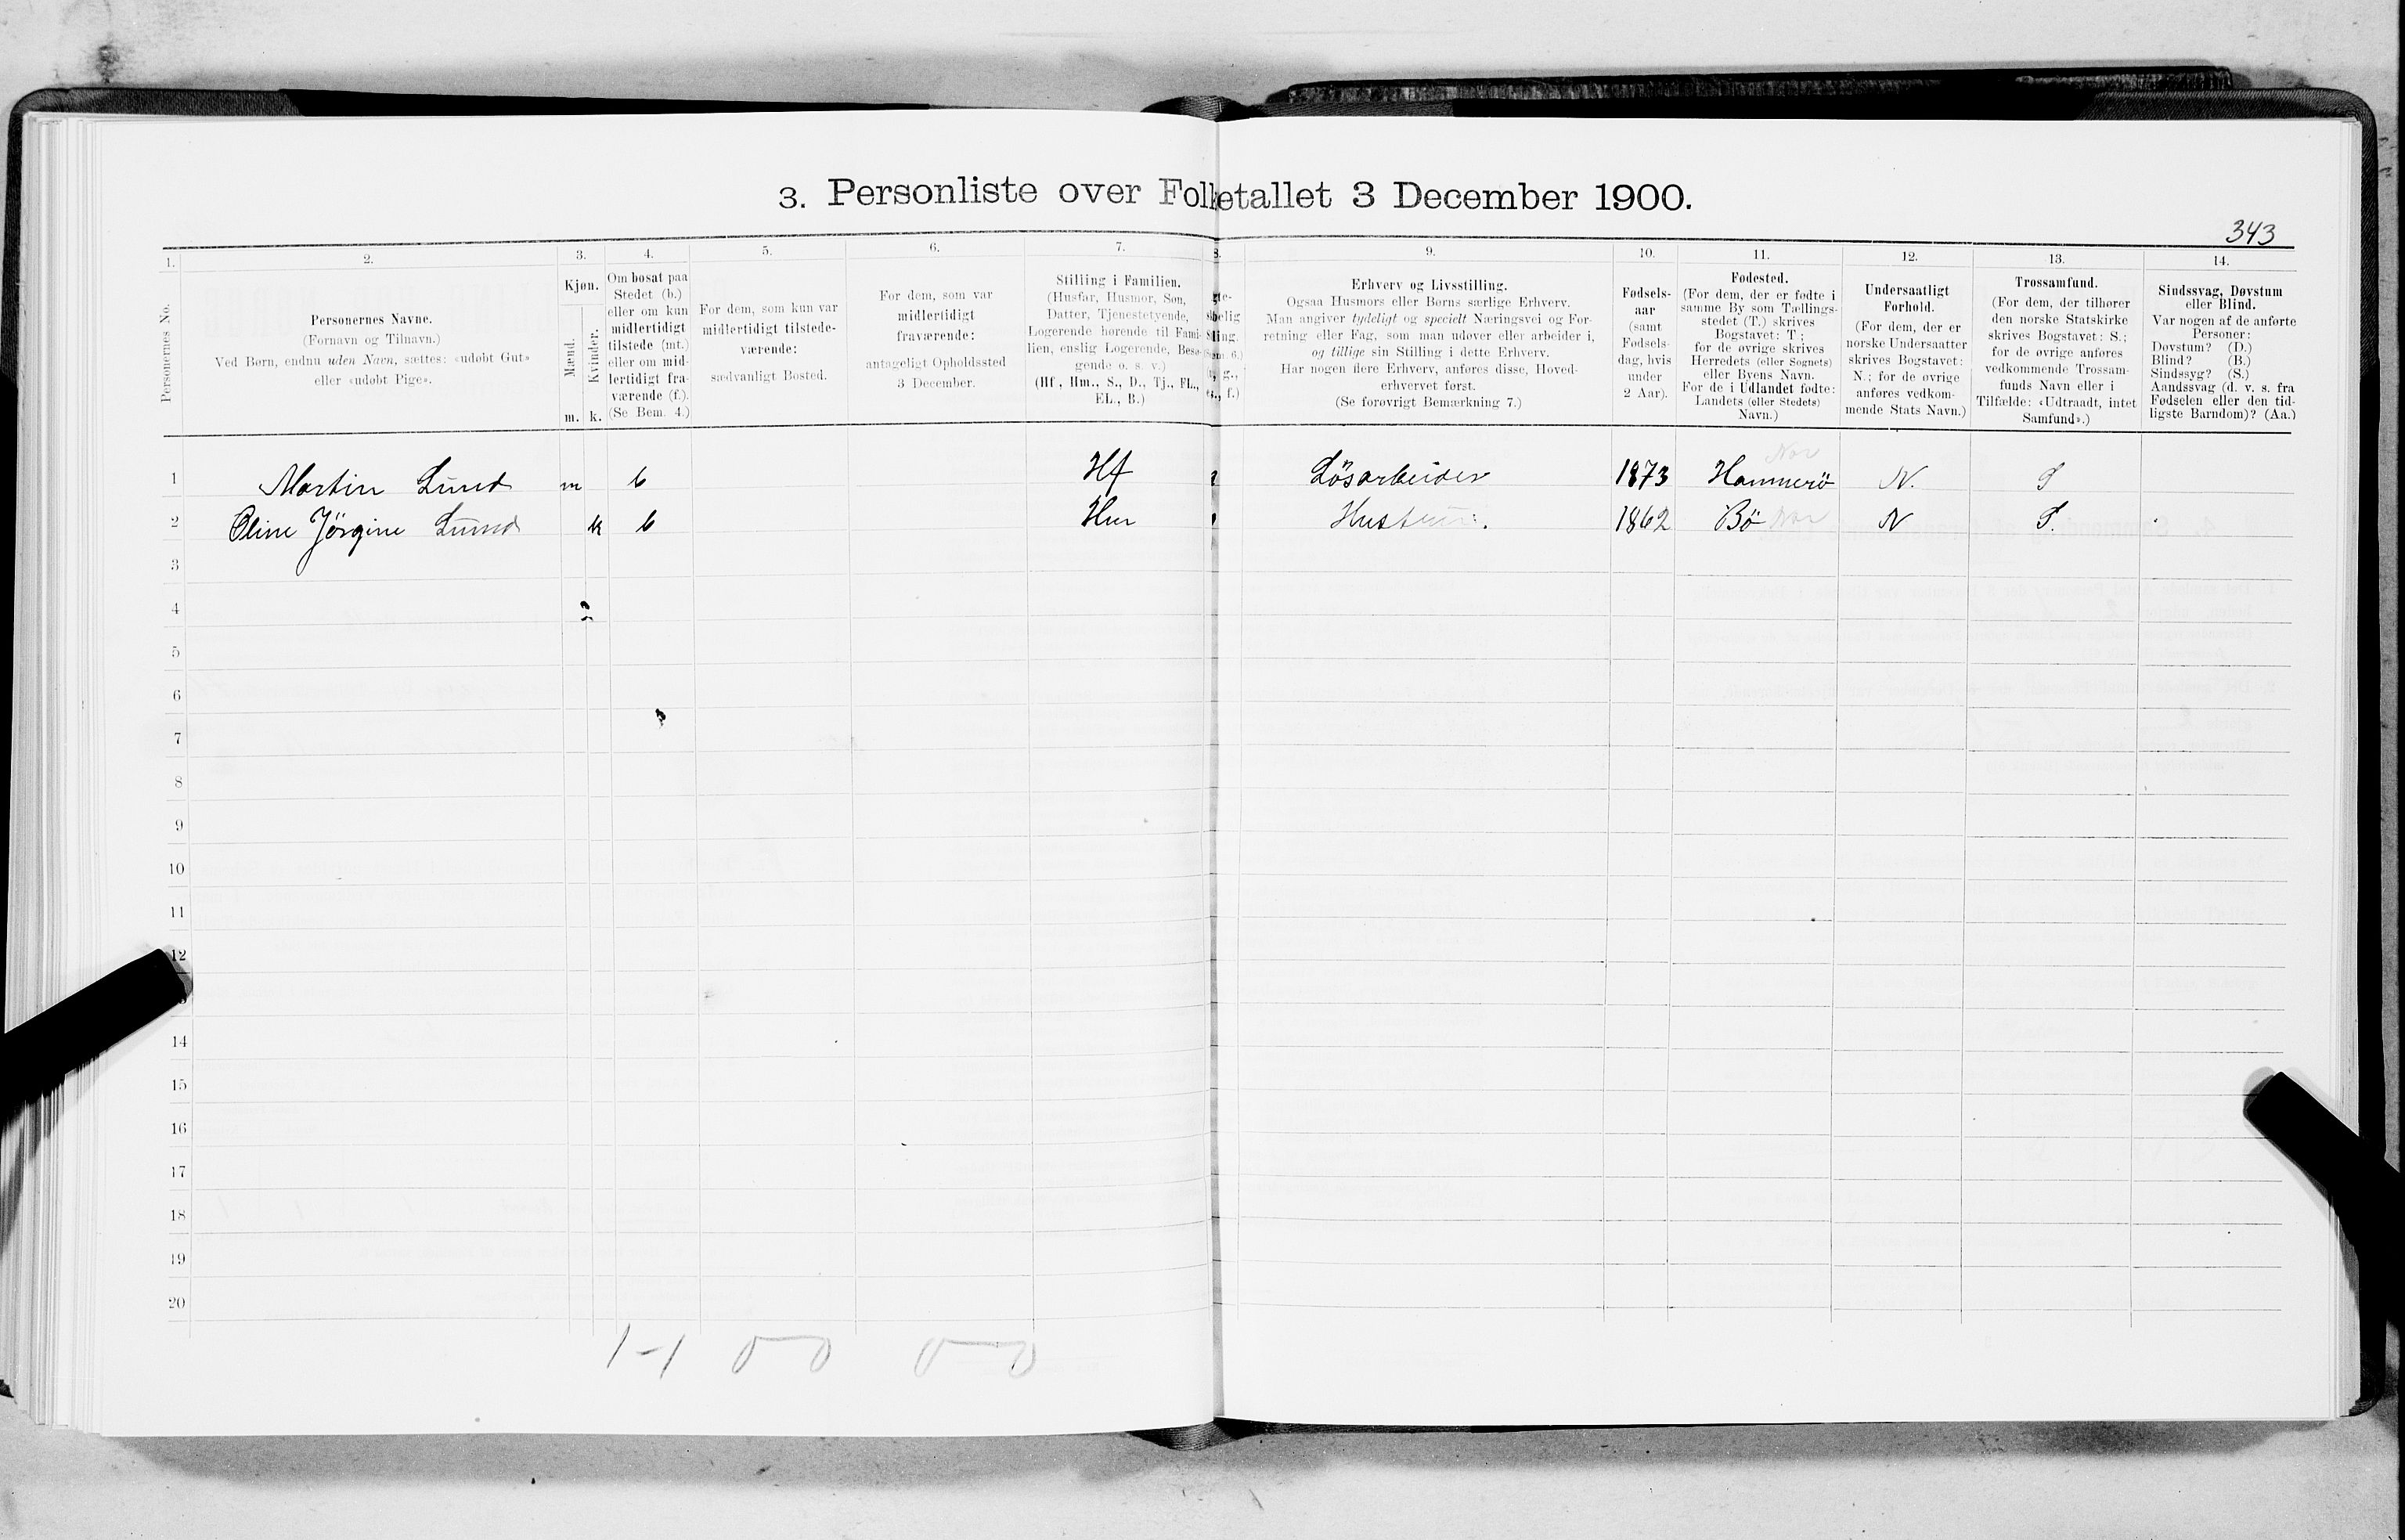 3. Personliste over Folketallet 3 December 1900.
343
1. 2. 3. 4. 5. 6. 7. 8. 9. 10. 11. 12. 13. 14.
Personernes No.
Personernes Navne.
(Fornavn og Tilnavn.)
Ved Børn, endnu uden Navn, sættes: «udøbt Gut»
eller «udøbt Pige».
Kjøn.
Mænd.
Kvinder.
m. k.
Om bosat paa
Stedet (b.)
eller om kun
midlertidigt
tilstede (mt.)
eller om mid-
lertidigt fra-
værende (f.).
(Se Bem. 4.)
For dem, som kun var
midlertidigt tilstede-
værende:
sædvanligt Bosted.
For dem, som var
midlertidigt
fraværende:
antageligt Opholdssted
3 December.
Stilling i Familien.
(Husfar, Husmor, Søn,
Datter, Tjenestetyende,
Logerende hørende til Fami-
lien, enslig Logerende, Besø-
gende o. s. v.)
(Hf., Hm., S., D., Tj., FL.,
EL., B.)
Erhverv og Livsstilling.
Ogsaa Husmors eller Børns særlige Erhverv.
Man angiver tydeligt og specielt Næringsvei og For-
retning eller Fag, som man udøver eller arbeider i,
og tillige sin Stilling i dette Erhverv.
Har nogen flere Erhverv, anføres disse, Hoved-
erhvervet først.
(Se forøvrigt Bemærkning 7.)
Fødsels-
aar
(samt
Fødsels-
dag, hvis
under
2 Aar).
Fødested.
(For dem, der er fødte i
samme By som Tællings-
stedet (T.) skrives
Bogstavet: T;
for de øvrige skrives
Herredets (eller Sognets)
eller Byens Navn.
For de i Udlandet fødte:
Landets (eller Stedets)
Navn.)
Undersaatligt
Forhold.
(For dem, der er
norske Undersaatter
skrives Bogstavet:
N.; for de øvrige
anføres vedkom-
mende Stats Navn.)
Trossamfund.
(For dem, der tilhører
den norske Statskirke
skrives Bogstavet: S.;
for de øvrige anføres
vedkommende Trossam-
funds Navn eller i
Tilfælde: «Udtraadt, intet
Samfund».)
Sindssvag, Døvstum
eller Blind.
Var nogen af de anførte
Personer:
Døvstum? (D.)
Blind? (B.)
Sindssyg? (S.)
Aandssvag (d. v. s. fra
Fødselen eller den tid-
ligste Barndom)? (Aa.)
Nor
1 Martin Lund m b Hf Lösarbeider 1873 Hammerö N. S
2 Oline Jörgine Lund k b Hm 1862 Bö Nor N S.
3
4
5
6
7
8
9
10
11
12
14
15
16
17
18
19
20
1-1 0-0 0-0